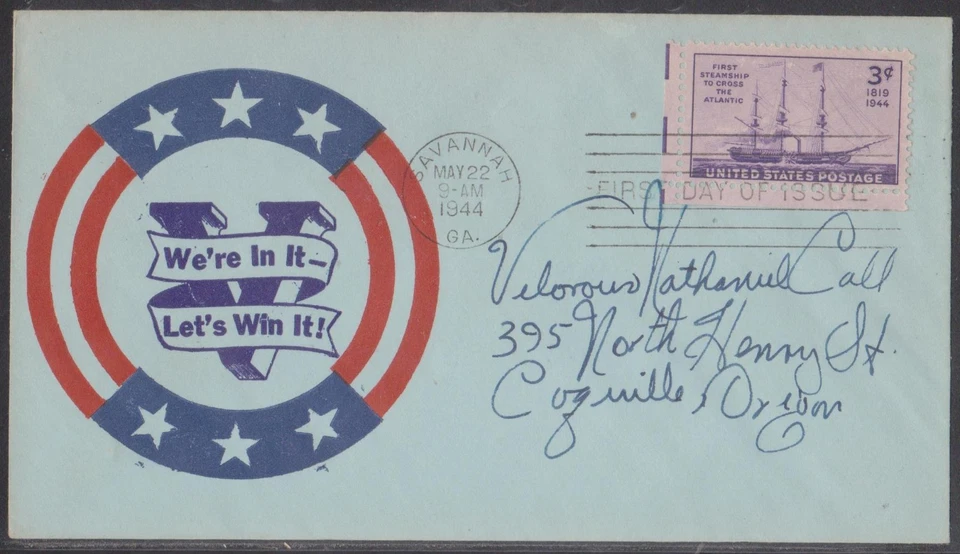 We're In It—
Let's Win It!
SAVANNAH
MAY 22
9-AM
1944
GA.
FIRST
STEAMSHIP
TO CROSS
THE
ATLANTIC
3¢
1819
1944
UNITED STATES POSTAGE
FIRST DAY OF ISSUE
Velorous Nathaniel Call
395 North Henry St.
Coquille, Oregon